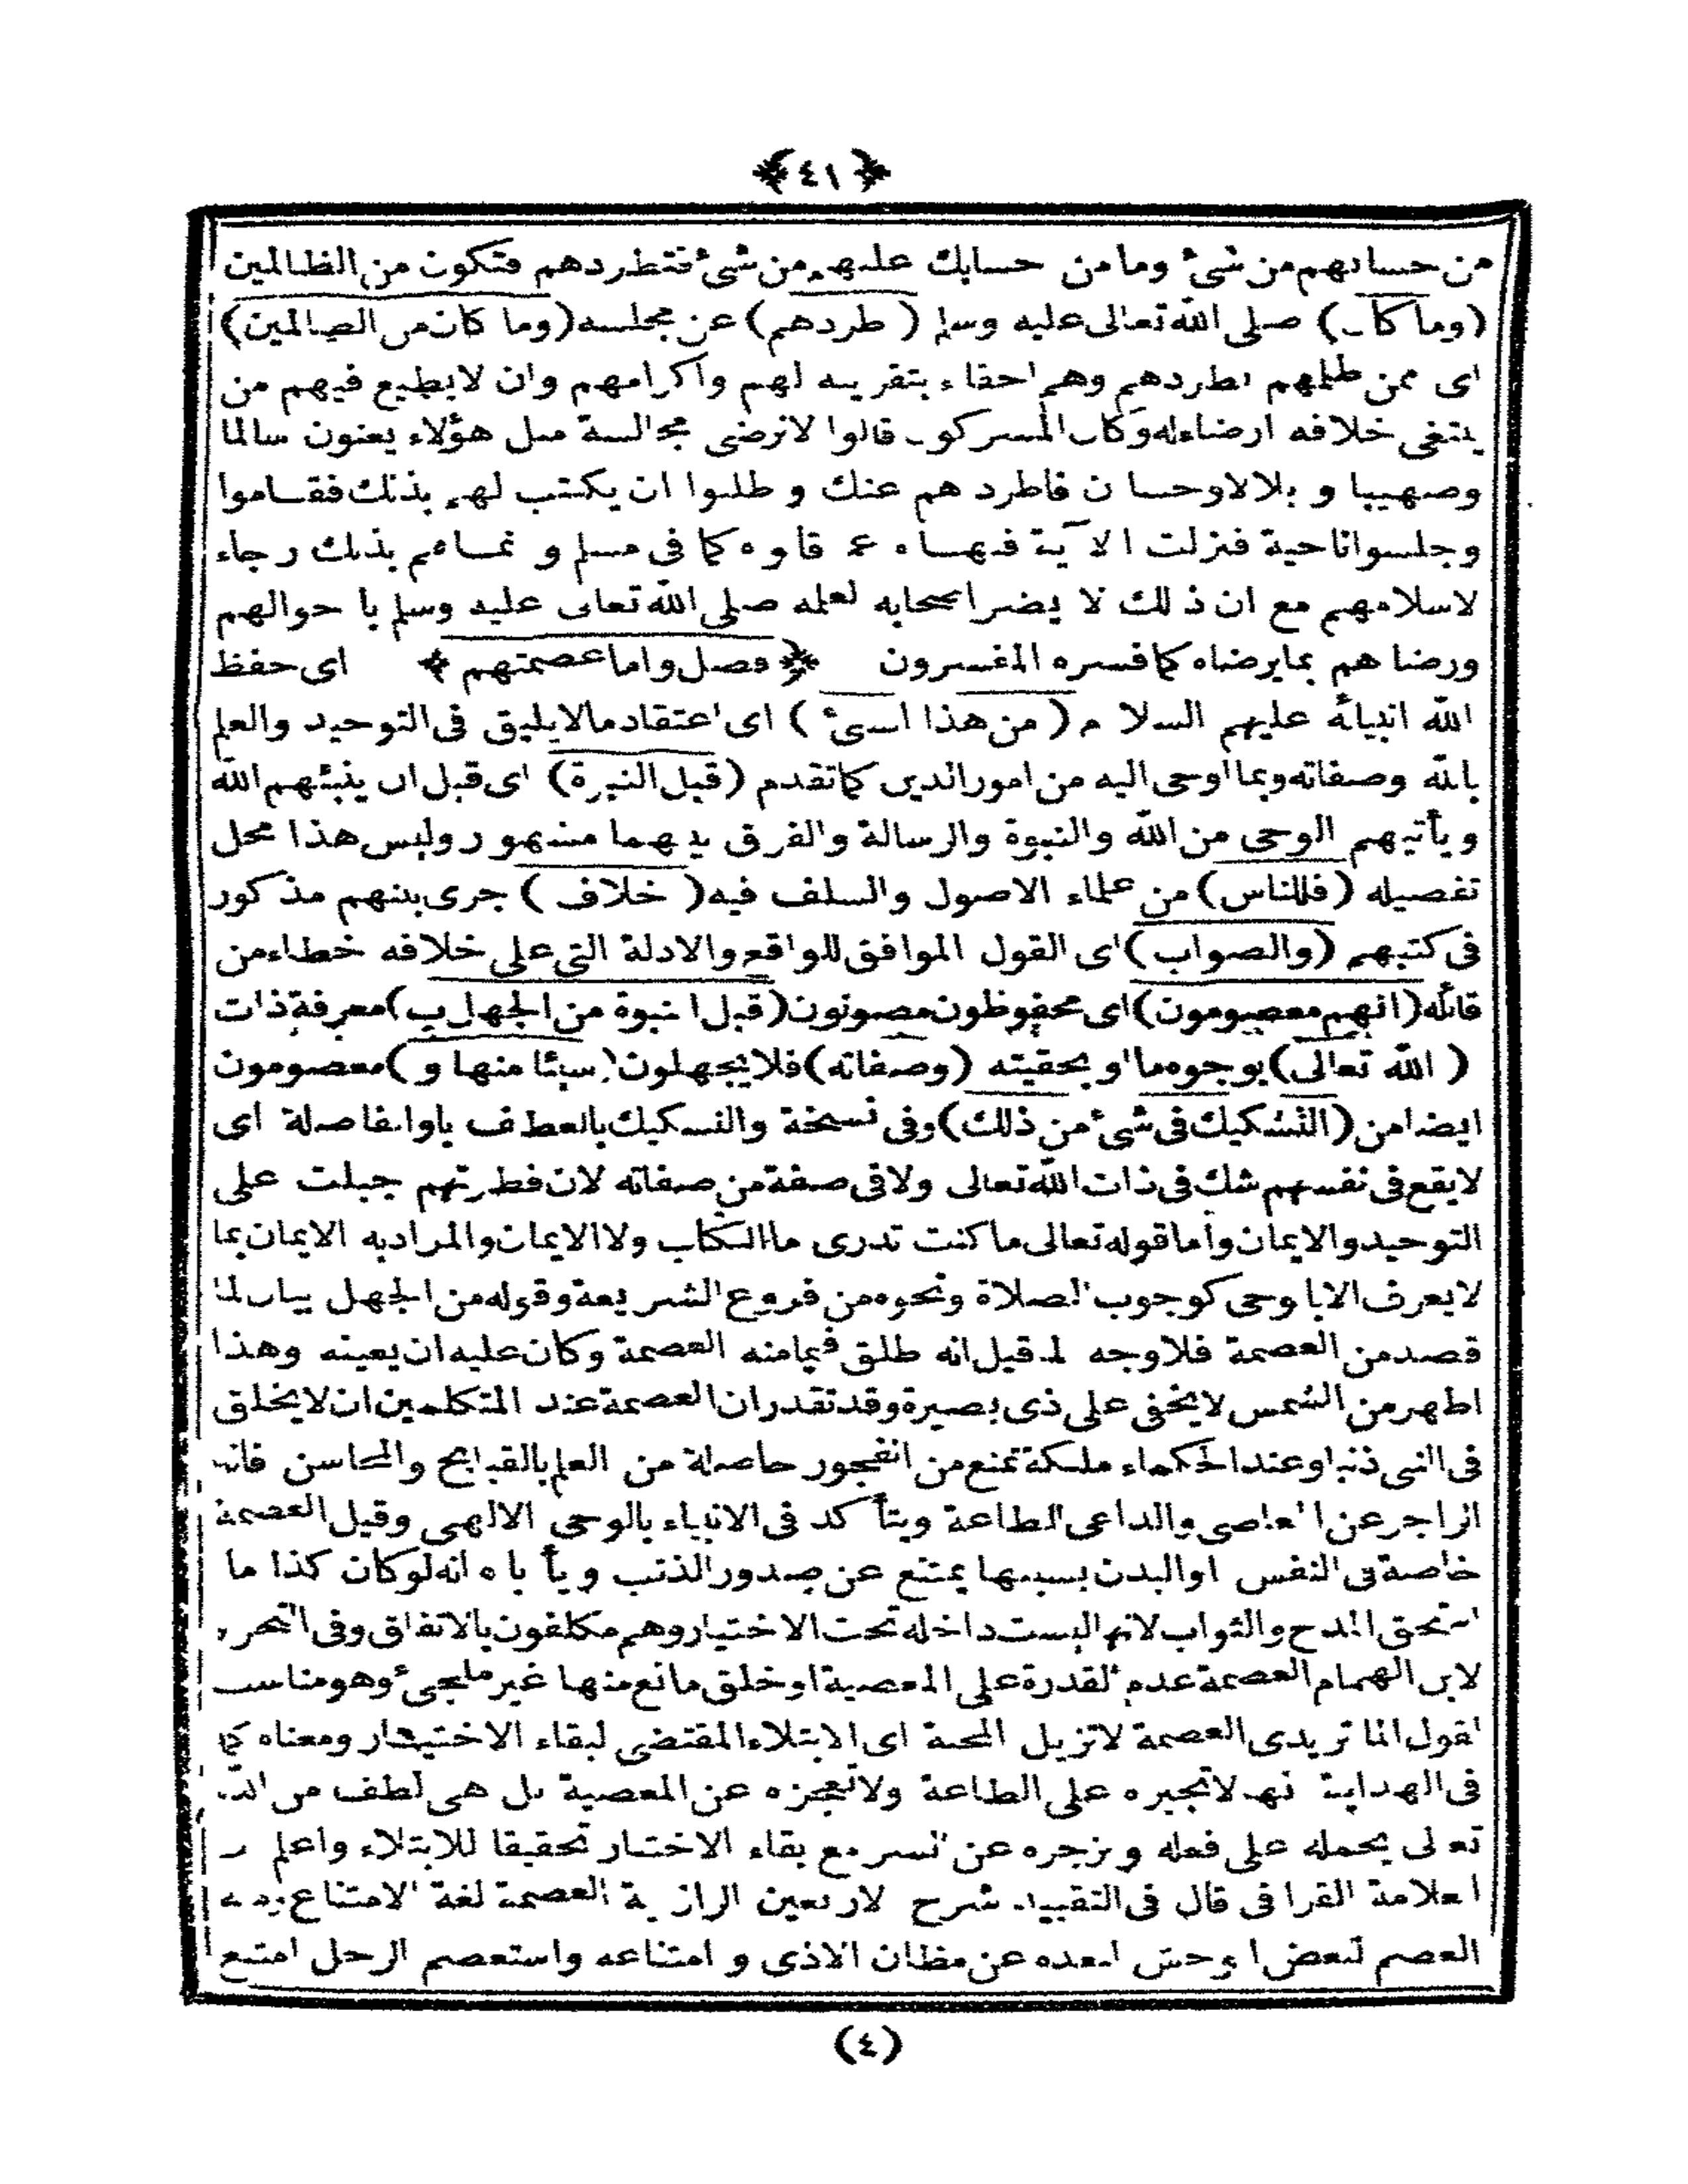 ﴿٤١﴾
من حسابهم من شئ وما من حسابك عليهم من شئ فتطردهم فتكون من الظالمين
(وما كان) صلى الله تعالى عليه وسلم (طردهم) عن مجلسه (وما كان من الظالمين)
اى ممن ظلمهم بطردهم وهم احقاء بتقريبه لهم واكرامهم وان لا يطيع فيهم من
يبتغى خلافه ارضاء له وكان المشركون قالوا لا نرضى مجالسة مثل هؤلاء يعنون سالما
وصهيبا و بلالا وحسان فاطردهم عنك و طلبوا ان يكتب لهم بذلك فقاموا
وجلسوا ناحية فنزلت الآية فنهاه عما قالوه كما فى مسلم و بذلك رجاء
لاسلامهم مع ان ذلك لا يضر اصحابه لعلمه صلى الله تعالى عليه وسلم با حوالهم
ورضا هم بما يرضاه كما فسره المفسرون ﴿فصل واما عصمتهم﴾ اى حفظ
الله انبيائه عليهم السلام (من هذا الشئ) اى اعتقاد ما لا يليق فى التوحيد والعلم
بالله وصفاته وبما اوحى اليه من امور الدين كما تقدم (قبل النبوة) اى قبل ان ينبئهم الله
ويأتيهم الوحى من الله والنبوة والرسالة والفرق بينهما مشهور وليس هذا محل
تفصيله (فللناس) من علماء الاصول والسلف فيه (خلاف) جرى بينهم مذكور
فى كتبهم (والصواب) اى القول الموافق للواقع والادلة التى على خلافه خطاء من
قائله (انهم معصومون) اى محفوظون مصونون (قبل النبوة من الجهل ب) معرفة ذات
(الله تعالى) بوجوه ما او بحقيقته (وصفاته) فلا يجهلون (شيئا منها و) معصومون
ايضا من (التشكيك فى شئ من ذلك) وفى نسخة والتشكيك بالعطف باو الفاصلة اى
لا يقع فى نفسهم شك فى ذات الله تعالى ولا فى صفة من صفاته لان فطرتهم جبلت على
التوحيد والايمان واما قوله تعالى ما كنت تدرى ما الكتاب ولا الايمان والمراد به الايمان بما
لا يعرف الا با وحى كوجوب الصلاة ونحوه من فروع الشريعة وقوله من الجهل بيان لما
قصد من العصمة فلا وجه لما قيل انه طلق فيما منه العصمة وكان عليه ان يعينه وهذا
اظهر من الشمس لا يخفى على ذى بصيرة وقد تقدر ان العصمة عند المتكلمين ان لا يخلق
فى النبى ذنبا وعند الحكماء ملكة تمنع من الفجور حاصلة من العلم بالقبايح والمحاسن فانه
الزاجر عن المعاصى والداعى الطاعة ويتأكد فى الانبياء بالوحى الالهى وقيل العصمة
خاصة فى النفس او البدن بسببها يمتنع عن صدور الذنب ويأباه انه لو كان كذا ما
استحق المدح والثواب لانها ليست داخله تحت الاختيار وهم مكلفون بالاتفاق وفى التحرير
لابن الهمام العصمة عدم القدرة على المعصية او خلق مانع منها غير ملجئ وهو مناسب
لقول الماتريدى العصمة لا تزيل المحنة اى الابتلاء المقتضى لبقاء الاختيار ومعناه كما
فى الهداية انها لا تجبره على الطاعة ولا تعجزه عن المعصية بل هى لطف من الله
تعالى يحمله على فعله ويزجره عن الشر مع بقاء الاختيار تحقيقا للابتلاء واعلم ان
العلامة القرافى قال فى شرح لاربعين الرازية العصمة لغة الامتناع ومنه
العصم لبعض الوحش لبعده عن مظان الاذى و امتناعه واستعصم الرجل امتنع
(٤)